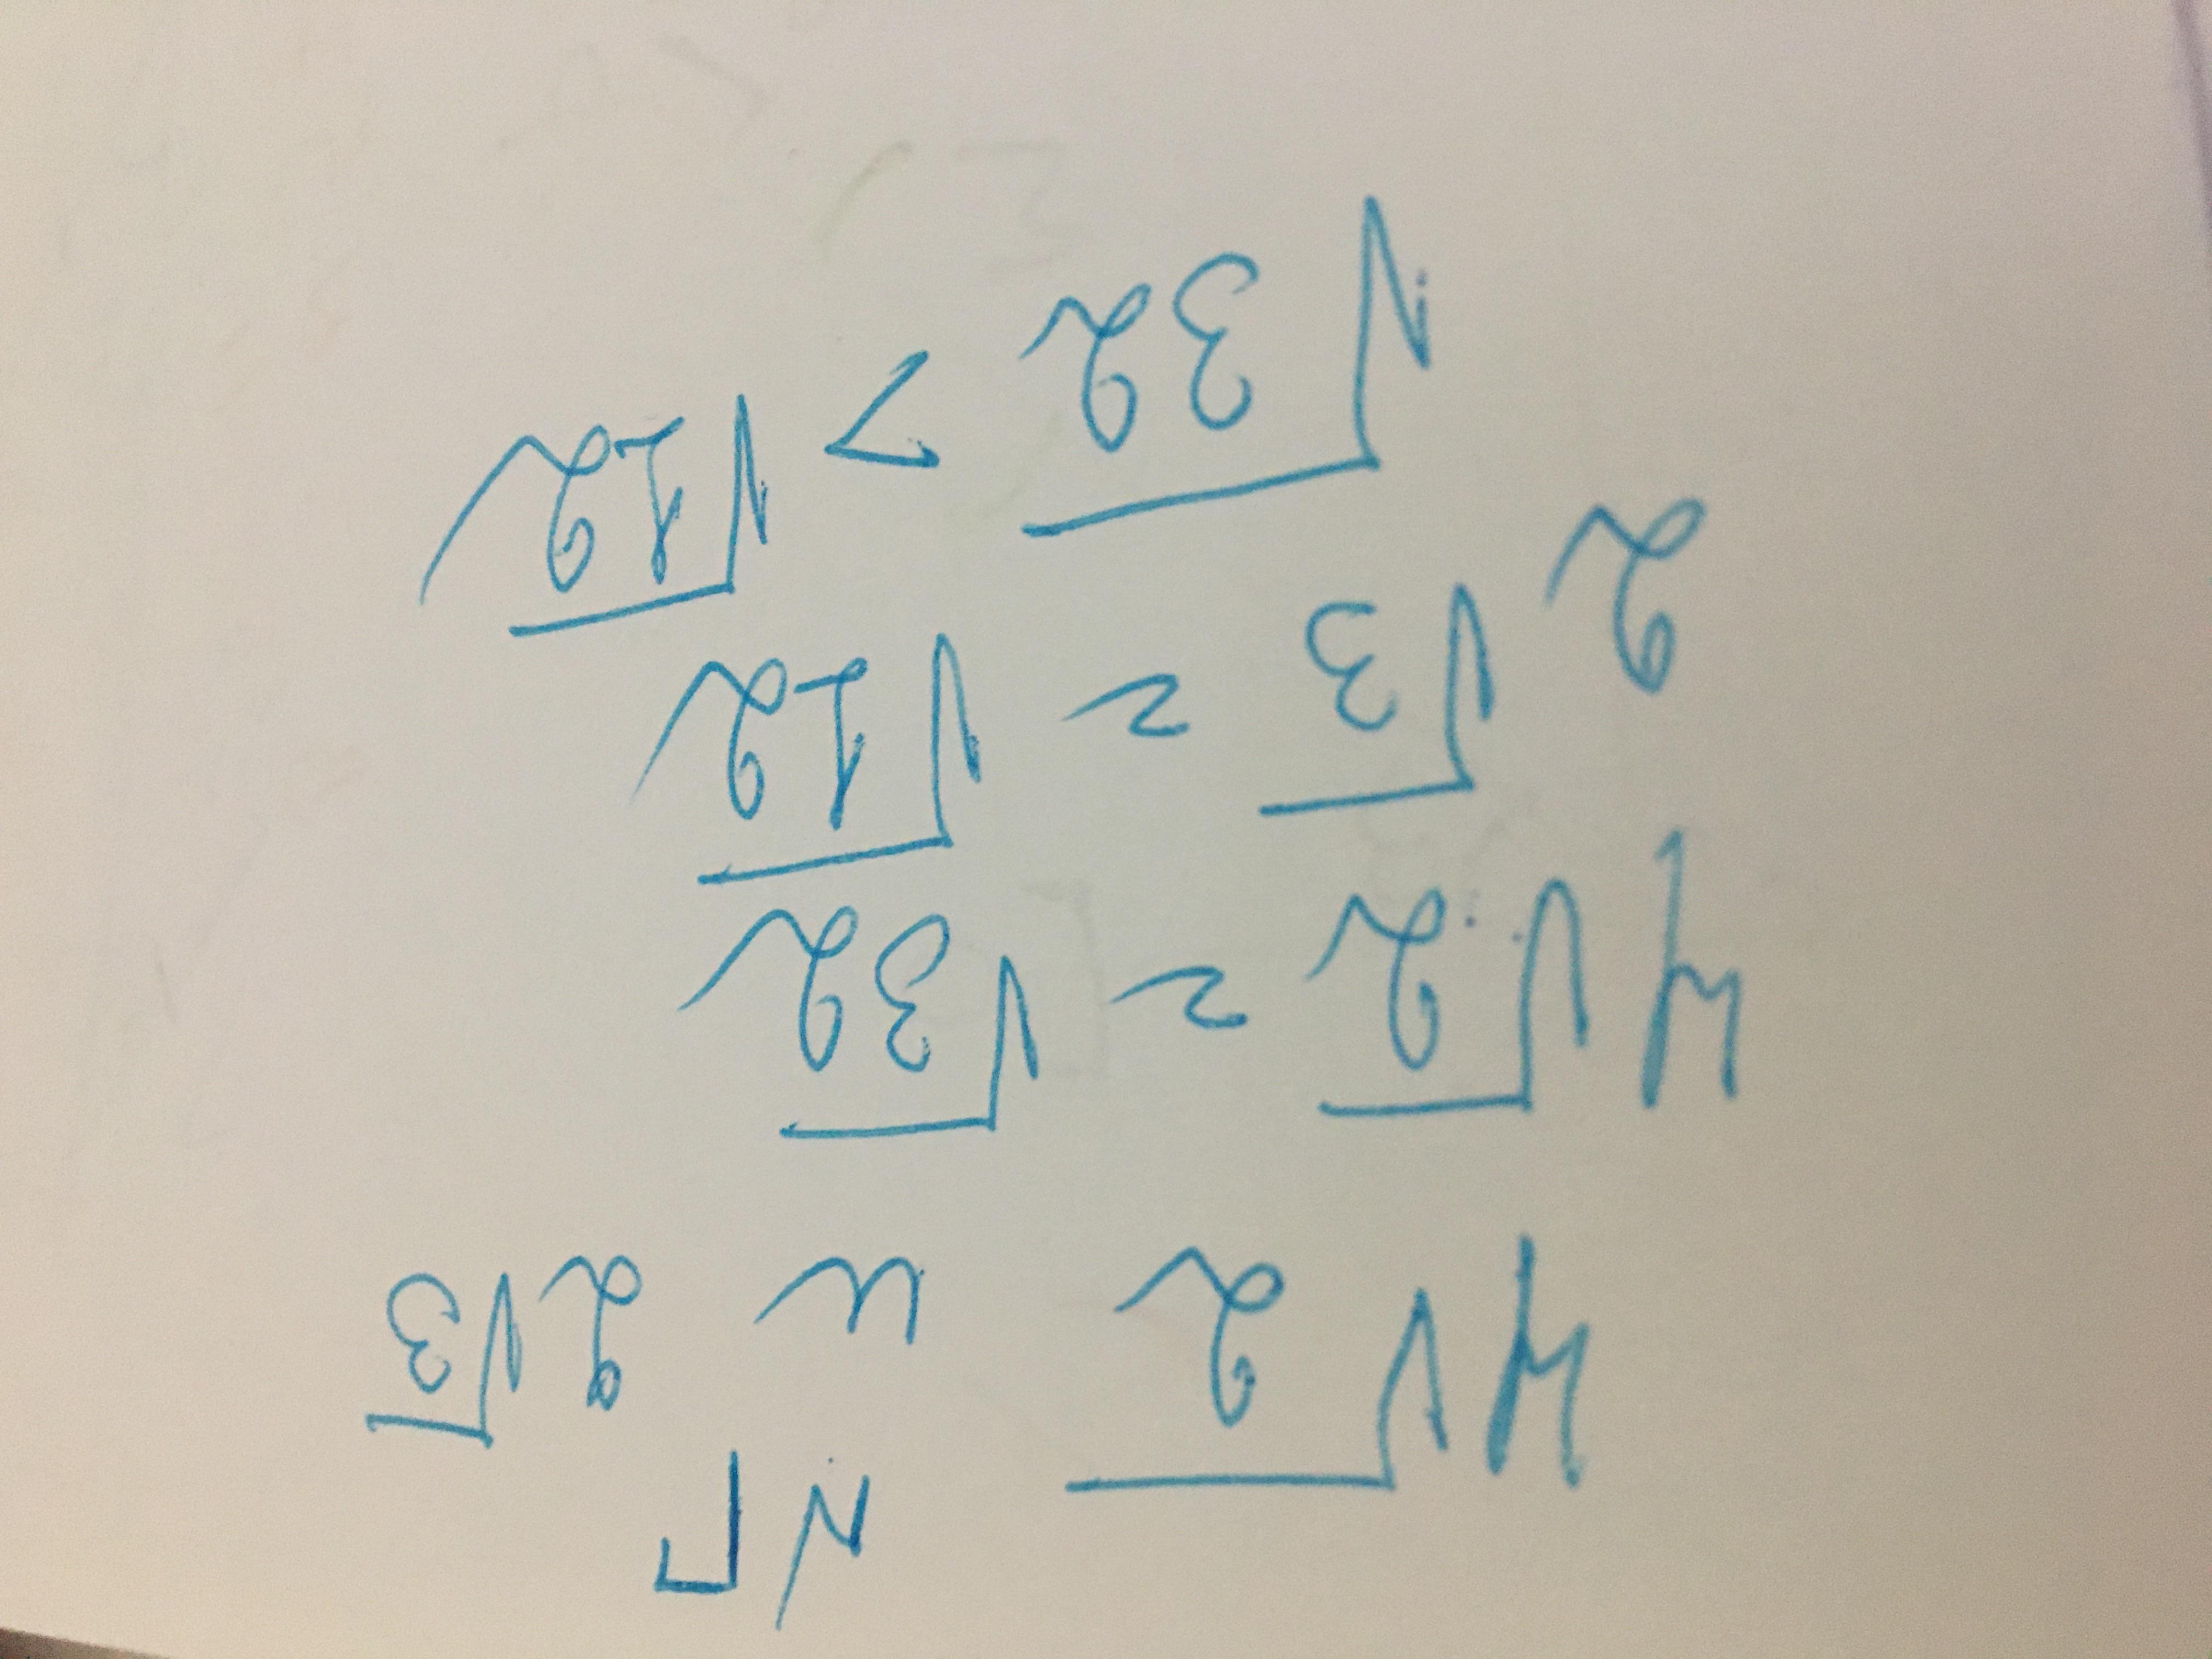 4√2 и 2√3
4√2 = √32
2√3 = √12
√32 > √12